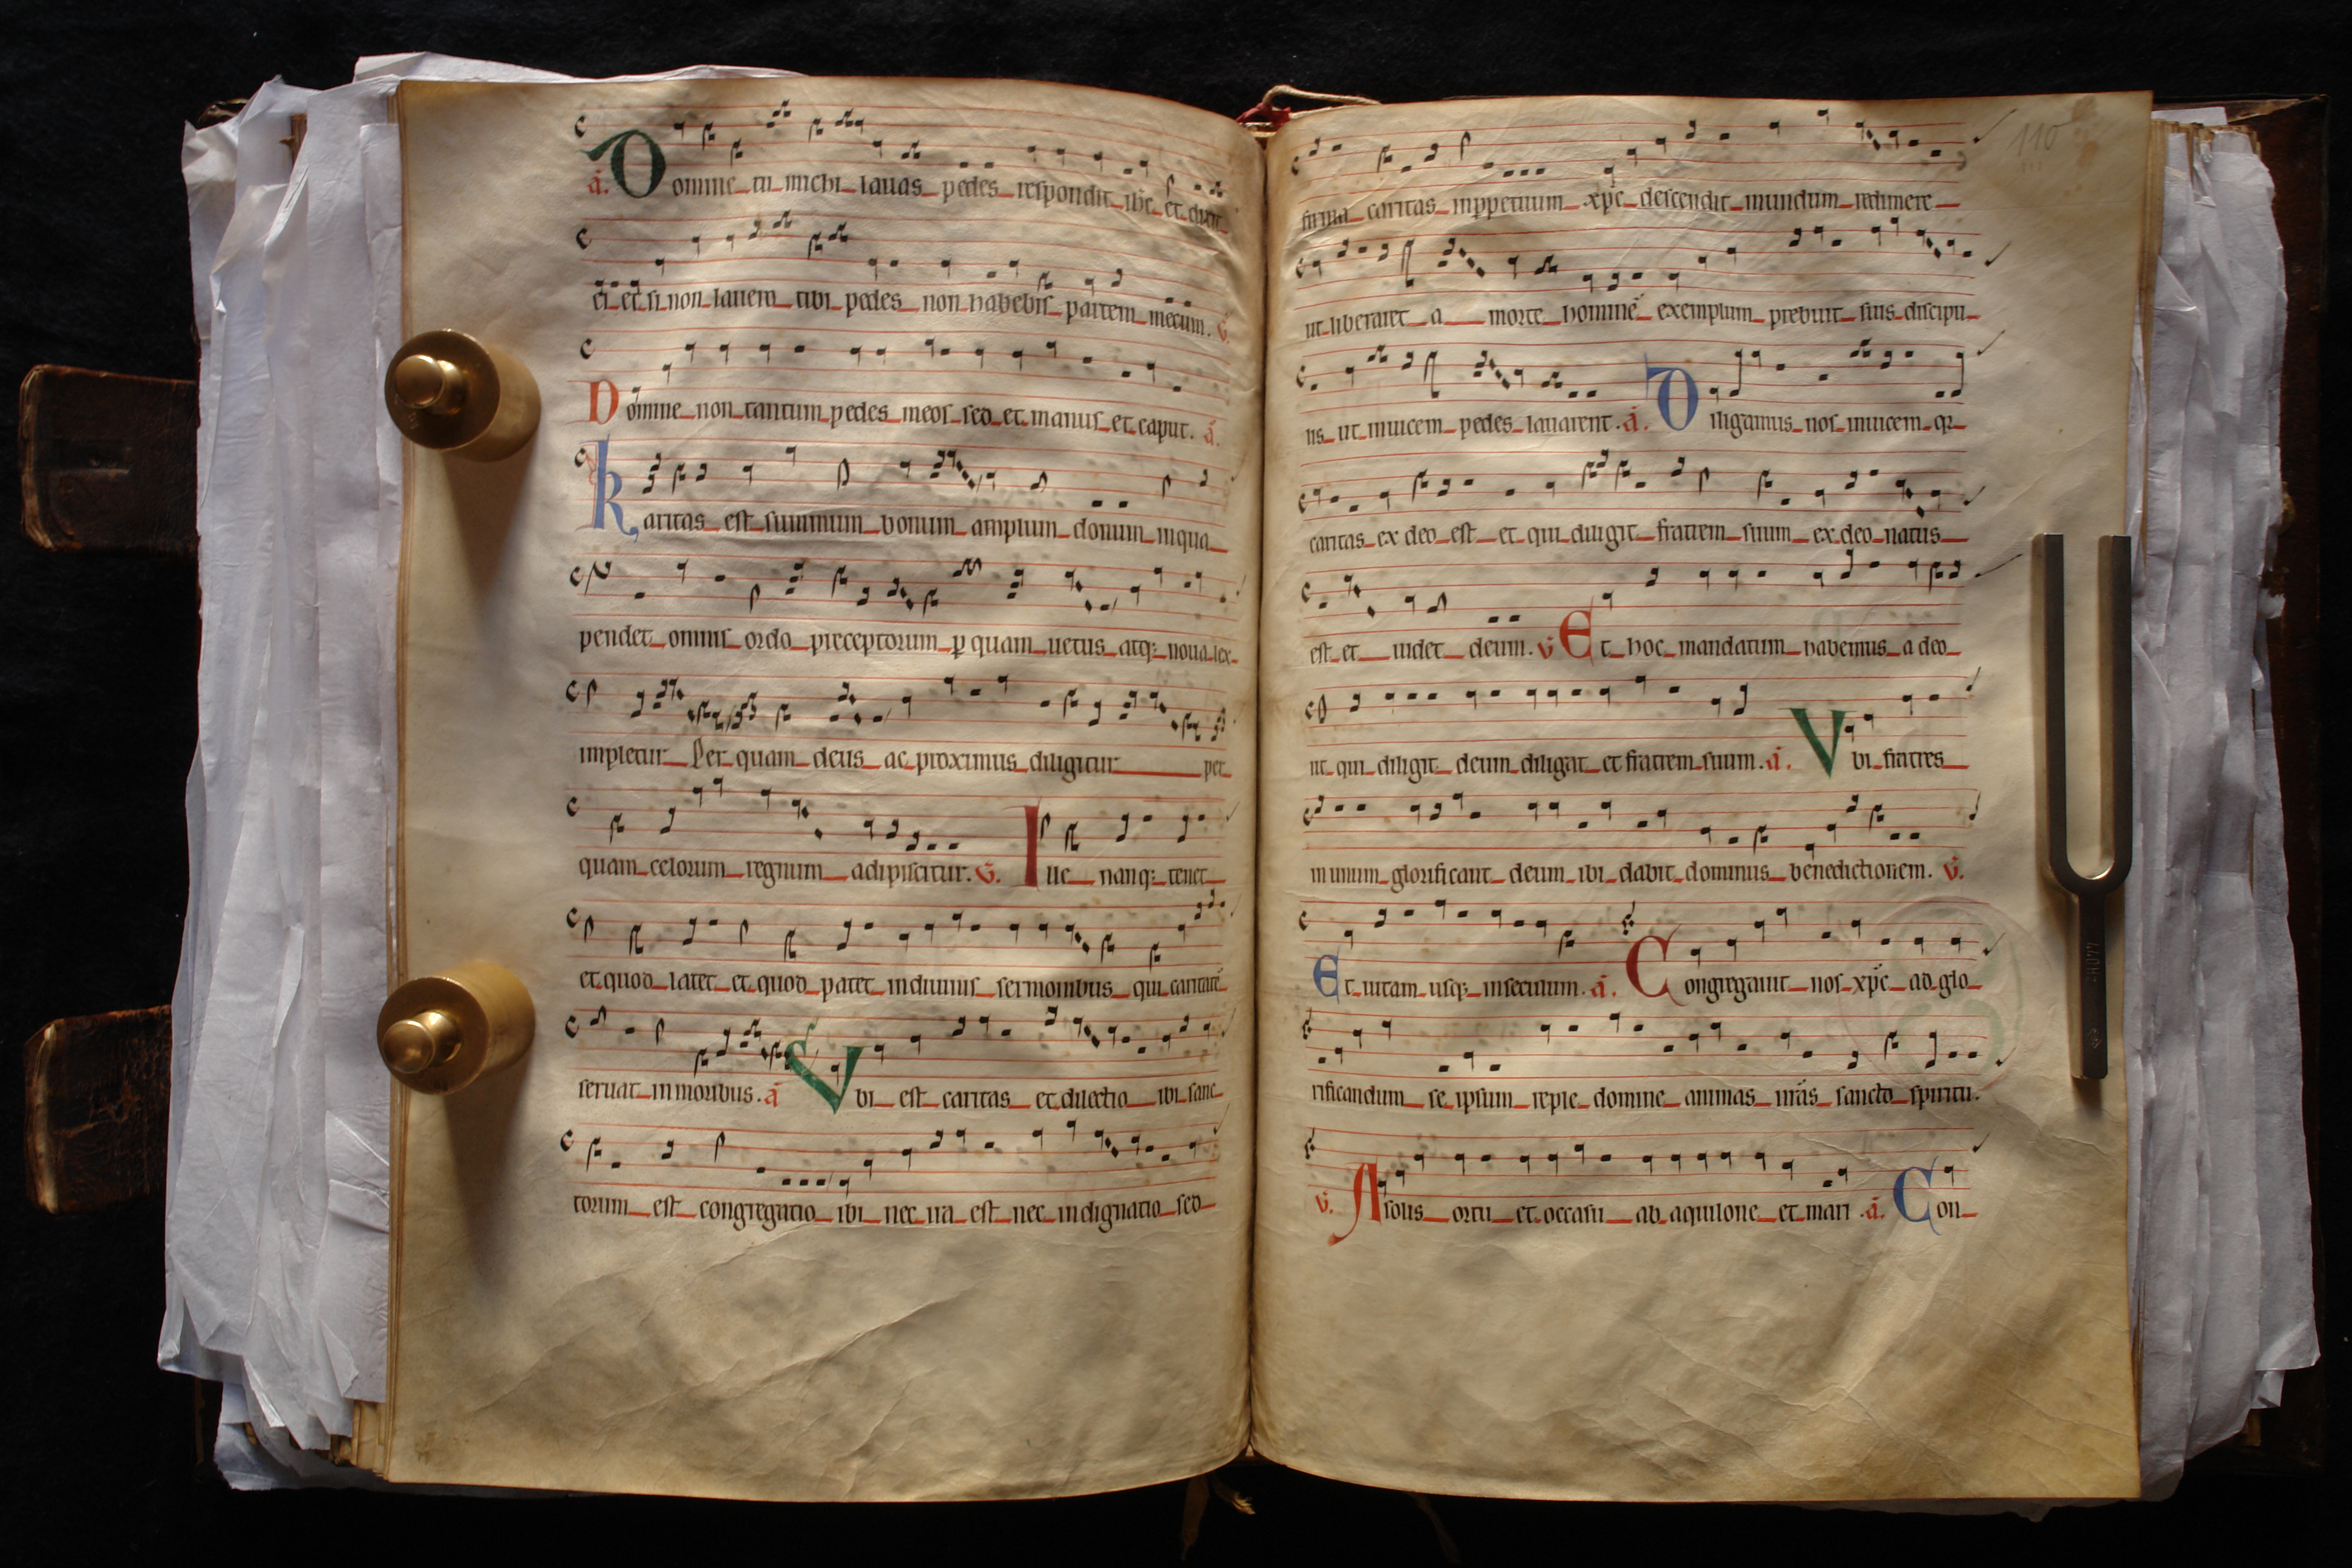 a. Domine tu michi lauas pedes respondit ihc et dixit
ei et si non lauero tibi pedes non habebis partem mecum. v.
Domine non tantum pedes meos sed et manus et caput. a.
Karitas est summum bonum amplum donum inqua
pendet omnis ordo preceptorum p quam uetus atq; noua lex
impletur Per quam deus ac proximus diligitur per
quam celorum regnum adipiscitur. v. Ille nanq; tenet
et quod latet et quod patet indiuinis sermonibus qui caritate
seruat inmoribus. a Vbi est caritas et dilectio ibi sanc
torum est congregatio ibi nec ira est nec indignatio sed
110
firma caritas inppetuum xpc descendit mundum redimere
ut liberaret a morte homine exemplum prebuit suis discipu
lis ut inuicem pedes lauarent. a. Diligamus nos inuicem qr
caritas ex deo est et qui diligit fratrem suum ex deo natus
est et uidet deum. v Et hoc mandatum habemus a deo
ut qui diligit deum diligat et fratrem suum. a. Vbi fratres
in unum glorificant deum ibi dabit dominus benedictionem. v.
Et uitam usq; inseculum. a. Congregauit nos xpc ad glo
rificandum se ipsum reple domine animas nras sancto spiritu.
v. A solis ortu et occasu ab aquilone et mari. a. Con